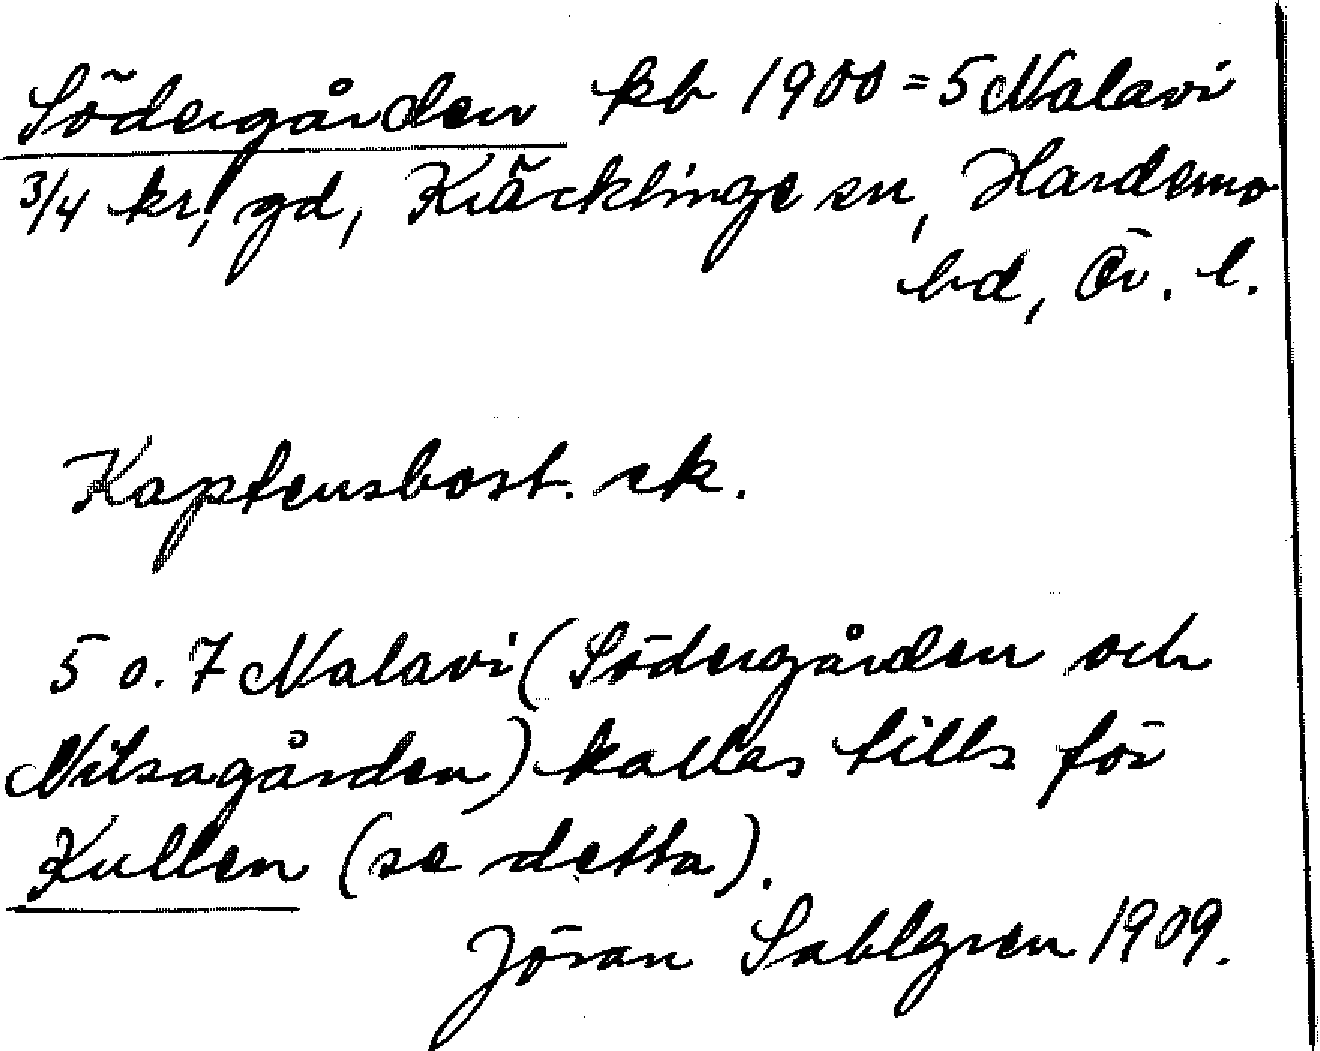 Södergården kb 1900 = 5 Nalavi
3/4 kr, gd, Kräcklinge sn, Hardemo
hd, Ör. l.
Kaptensbost. ek.
5 o. 7 Nalavi (Södergården och
Nilsagården) kallas tills för
Kullen (se detta).
Jöran Sahlgren 1909.